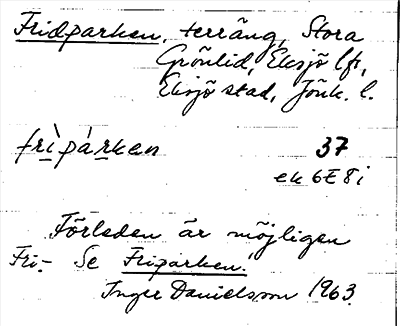 Fridparken, terräng, Stora
Grönlid, Eksjö lfs,
Eksjö stad, Jönk. l.
frìpárken 37
ek 6E8i
Förleden är möjligen
Fri-. Se Friparken.
Inger Danielsson 1963